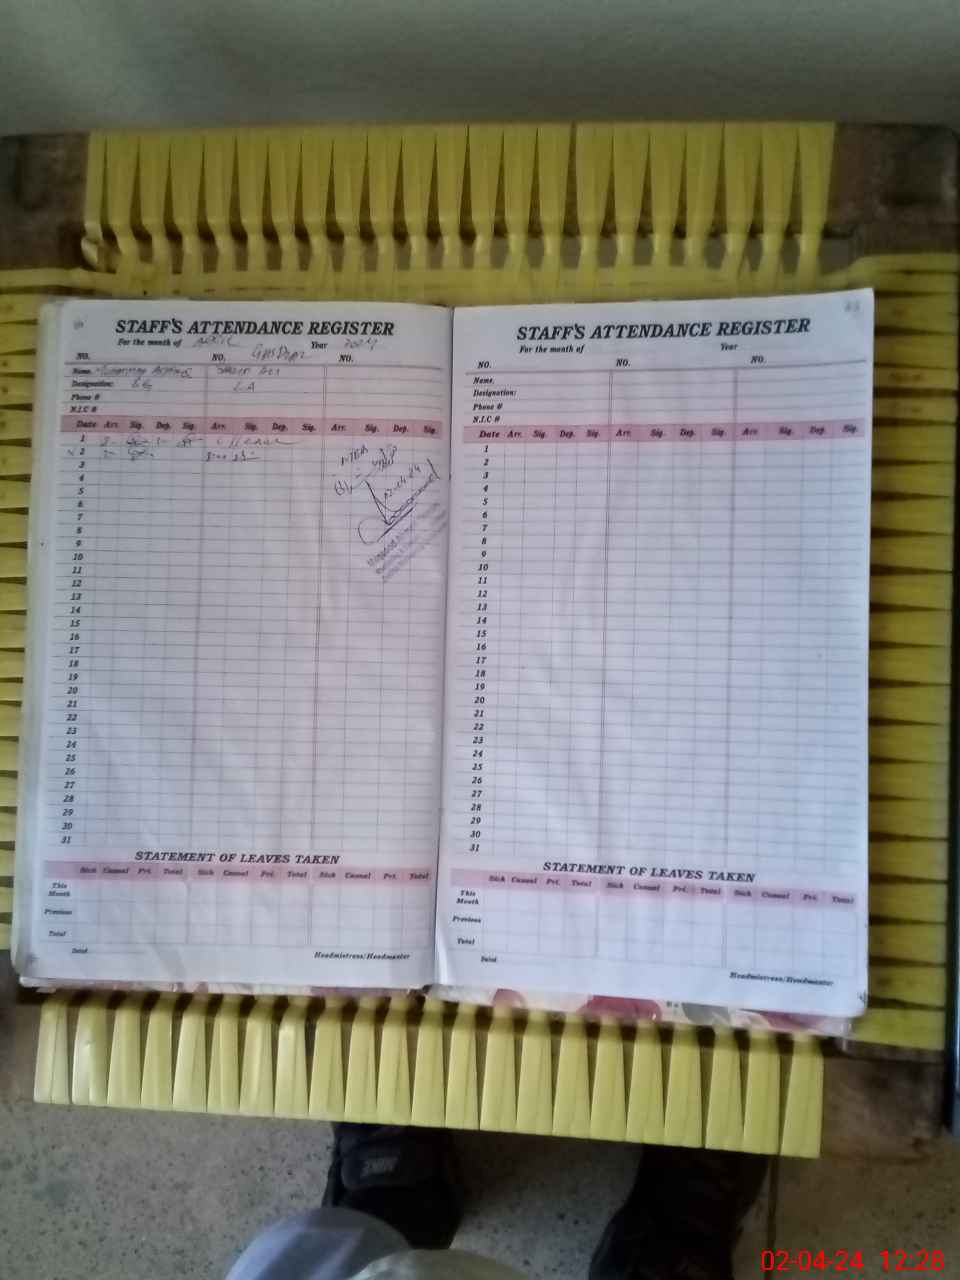 STAFF'S ATTENDANCE REGISTER
For the month of APRIL Year 2024
NO. NO. NO.
Name.
Designation: LA
Phone #
N.I.C #
Date Arr. Sig. Dep. Sig. Arr. Sig. Dep. Sig. Arr. Sig. Dep. Sig.
1
2
3
4
5
6
7
8
9
10
11
12
13
14
15
16
17
18
19
20
21
22
23
24
25
26
27
28
29
30
31
STATEMENT OF LEAVES TAKEN
Sick Casual Pri. Total Sick Casual Pri. Total Sick Casual Pri. Total
This Month
Previous
Total
Total
Headmistress/Headmaster
STAFF'S ATTENDANCE REGISTER
For the month of Year
NO. NO. NO.
Name.
Designation:
Phone #
N.I.C #
Date Arr. Sig. Dep. Sig. Arr. Sig. Dep. Sig. Arr. Sig. Dep. Sig.
1
2
3
4
5
6
7
8
9
10
11
12
13
14
15
16
17
18
19
20
21
22
23
24
25
26
27
28
29
30
31
STATEMENT OF LEAVES TAKEN
Sick Casual Pri. Total Sick Casual Pri. Total Sick Casual Pri. Total
This Month
Previous
Total
Total
Headmistress/Headmaster
NIKE
02-04-24 12:28